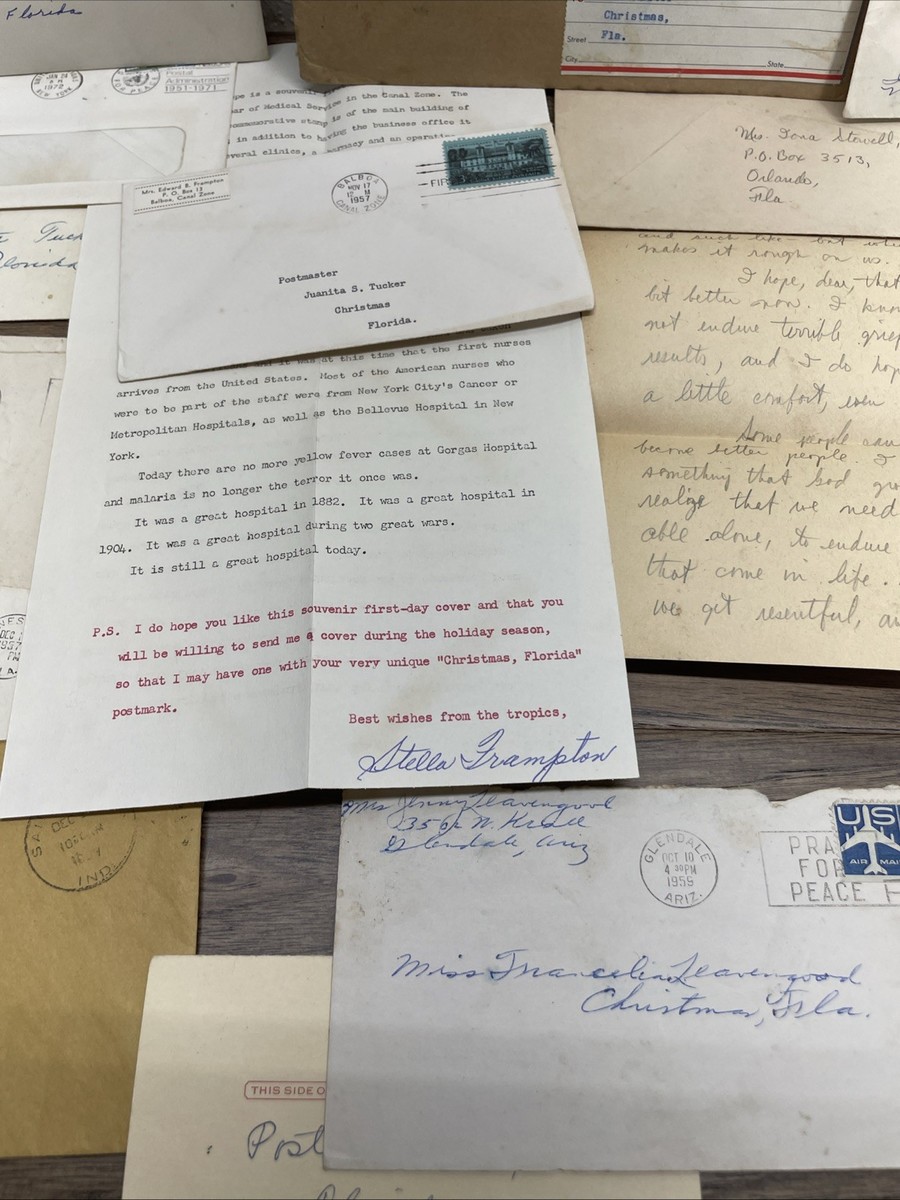 Florida
Christmas,
Street Fla.
City State
JAN 24
1972
NEW YORK
Postal
Administration
1951-1971
is a
of Medical in the Canal Zone. The
commemorative stamp is of the main building of
in addition to having the business office it
several clinics, a pharmacy and an
Mrs. Edward B. Frampton
P. O. Box 13
Balboa, Canal Zone
BALBOA
NOV 17
12 M
1957
CANAL ZONE
FIR
Postmaster
Juanita S. Tucker
Christmas
Florida.
Tuck
Florida
Mrs. Iona Stowell,
P.O. Box 3513,
Orlando,
Fla.
and such like - but
makes it rough on us.
I hope, dear, that
bit better now. I know
not endure terrible grief
results, and I do hope
a little comfort, even
Some people can
become better people. I
something that God
realize that we need
able alone, to endure
that come in life.
we get resentful,
it was at this time that the first nurses
arrives from the United States. Most of the American nurses who
were to be part of the staff were from New York City's Cancer or
Metropolitan Hospitals, as well as the Bellevue Hospital in New
York.
Today there are no more yellow fever cases at Gorgas Hospital
and malaria is no longer the terror it once was.
It was a great hospital in 1882. It was a great hospital in
1904. It was a great hospital during two great wars.
It is still a great hospital today.
P.S. I do hope you like this souvenir first-day cover and that you
will be willing to send me a cover during the holiday season,
so that I may have one with your very unique "Christmas, Florida"
postmark.
Best wishes from the tropics,
Stella Frampton
DEC
1957
DEC
IND
Mrs Jenny Leavengood
Glendale, Ariz
GLENDALE
OCT 10
4 30 PM
1959
ARIZ.
PRA
FOR
PEACE
US
AIR MAI
Miss Francelia Leavengood
Christmas, Fla.
THIS SIDE O
Post